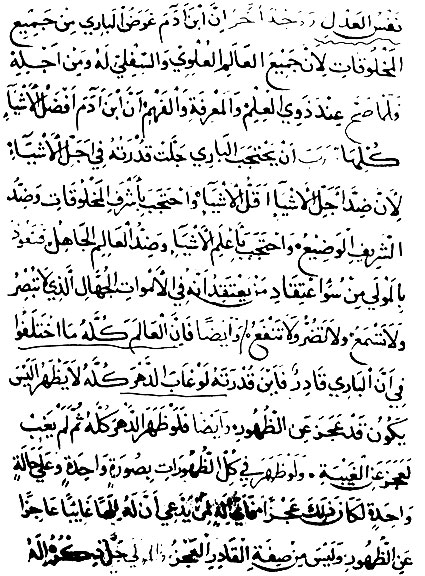 نفس العدل ووجد اخر ان ابن ادم غرض الباري من جميع
المخلوقات لان جميع العالم العلوي والسفلي له ومن اجله
ولما صح عند ذوي العلم والمعرفة والفهم ان ابن ادم افضل الاشيا
كلها ان يحتجب الباري جلت قدرته في اجل الاشياء
لان ضد اجل الاشيا اقل الاشيا واحتجب باشرف المخلوقات وضد
الشريف الوضيع واحتجب باعلم الاشيا وضد العالم الجاهل فنعوذ
بالمولى من سوء اعتقاد من يعتقد انه في الاموات الجهال الذي لا تبصر
ولا تسمع ولا تضر ولا تنفع وايضا فان العالم كله ما اختلفوا
في ان الباري قادر فاين قدرته لو غاب الدهر كله لا يظهر اليس
يكون قد عجز عن الظهور وايضا فلو ظهر الدهر كله ثم لم يغب
لعجز عن الغيبة ولو ظهر في كل الظهورات بصورة واحدة وعلى حالة
واحدة لكان ذلك عجزا يدعي ان له غايبا عاجزا
عن الظهور وليس من صفة القادر العجز جل ذكره